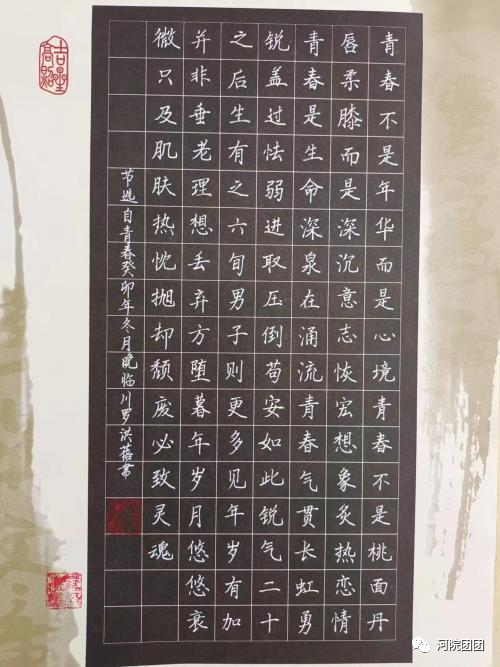 青春不是年华而是心境青春不是桃面丹
唇柔膝而是深沉意志恢宏想象炙热恋情
青春是生命深泉在涌流青春气贯长虹勇
锐盖过怯弱进取压倒苟安如此锐气二十
之后生有之六旬男子则更多见年岁有加
并非垂老理想丢弃方堕暮年岁月悠悠衰
微只及肌肤热忱抛却颓废必致灵魂
节选自青春癸卯年冬月晚临川罗洪蓓书
吉星高照
河院团团